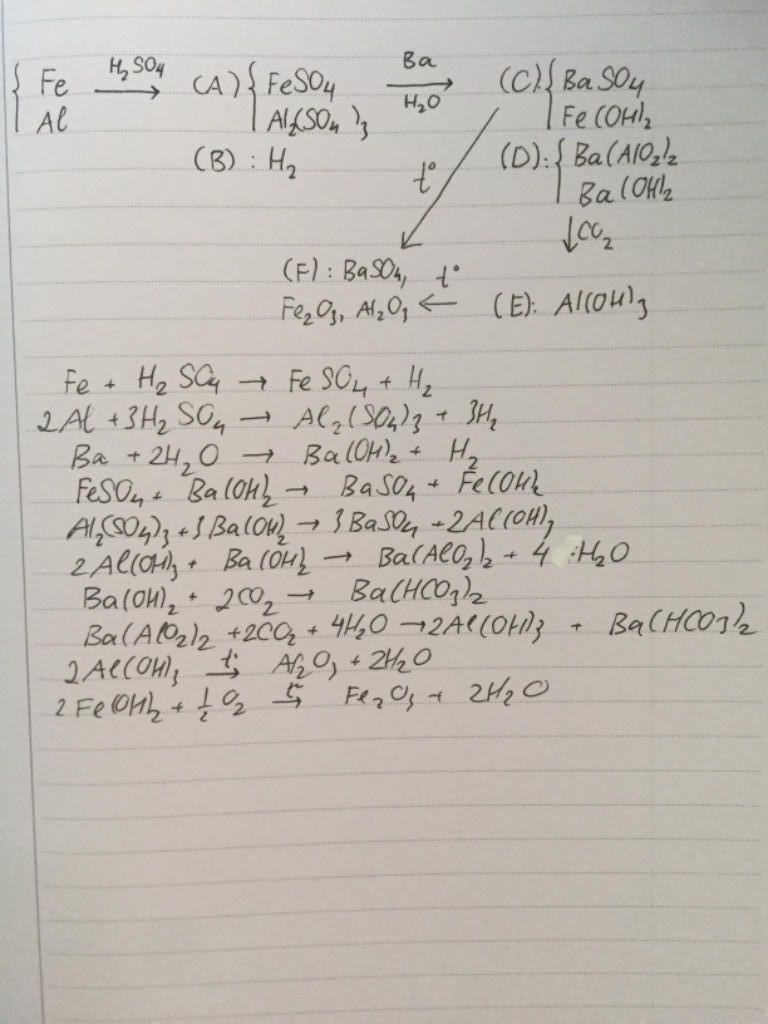 { Fe H₂SO₄ → (A) { FeSO₄ Ba / H₂O → (C) { BaSO₄
Al Al₂(SO₄)₃ Fe(OH)₂
(B) : H₂ t° (D) : { Ba(AlO₂)₂
Ba(OH)₂
↓CO₂
(F) : BaSO₄, t°
Fe₂O₃, Al₂O₃ ← (E): Al(OH)₃
Fe + H₂SO₄ → FeSO₄ + H₂
2Al + 3H₂SO₄ → Al₂(SO₄)₃ + 3H₂
Ba + 2H₂O → Ba(OH)₂ + H₂
FeSO₄ + Ba(OH)₂ → BaSO₄ + Fe(OH)₂
Al₂(SO₄)₃ + 3Ba(OH)₂ → 3BaSO₄ + 2Al(OH)₃
2Al(OH)₃ + Ba(OH)₂ → Ba(AlO₂)₂ + 4 H₂O
Ba(OH)₂ + 2CO₂ → Ba(HCO₃)₂
Ba(AlO₂)₂ + 2CO₂ + 4H₂O → 2Al(OH)₃ + Ba(HCO₃)₂
2Al(OH)₃ t° → Al₂O₃ + 2H₂O
2Fe(OH)₂ + ½ O₂ t° → Fe₂O₃ + 2H₂O